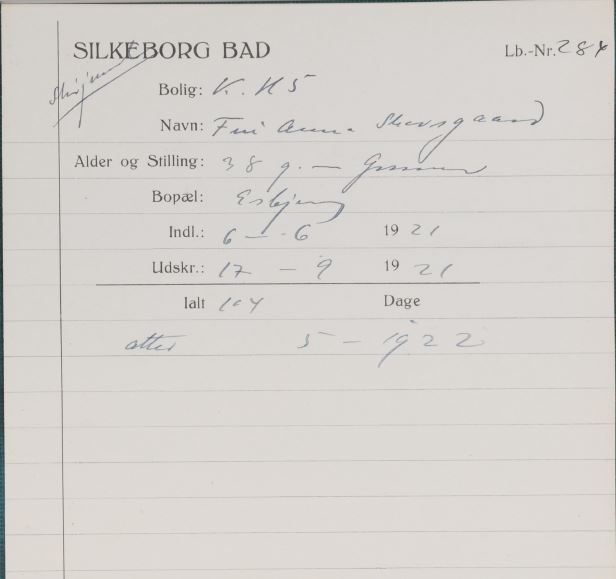 SILKEBORG BAD
Lb.-Nr. 284
Bolig: K. H 5
Navn: Fru Anna Skovsgaard
Alder og Stilling: 38 g. —
Bopæl: Esbjerg
Indl.: 6 — 6 1921
Udskr.: 17 — 9 1921
Ialt 104 Dage
atter 5 — 1922